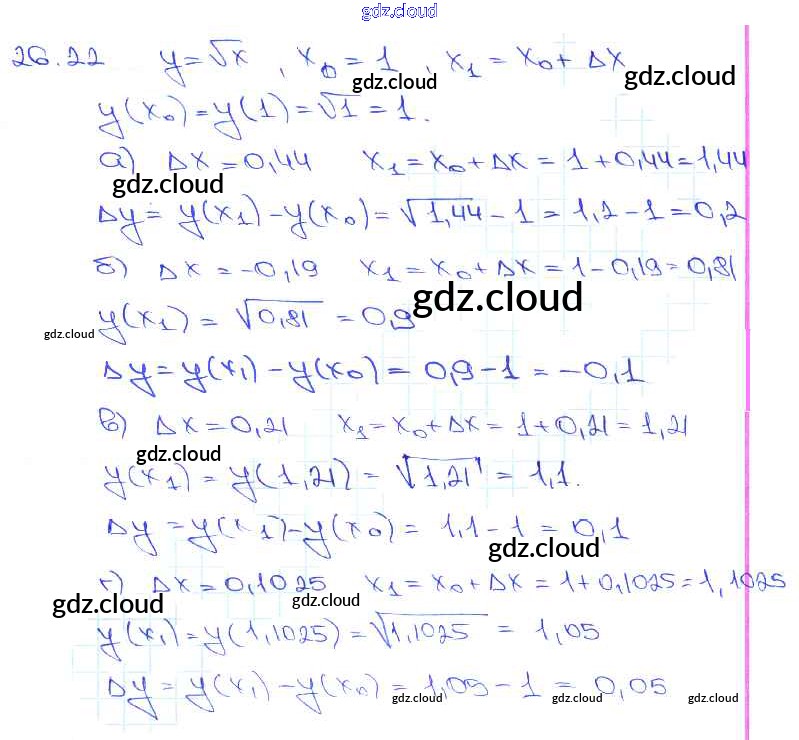 gdz.cloud
26.22 y=√x , x₀ = 1 , x₁ = x₀ + Δx
gdz.cloud gdz.cloud
y(x₀) = y(1) = √1 = 1.
а) Δx = 0,44 x₁ = x₀ + Δx = 1 + 0,44 = 1,44
gdz.cloud
Δy = y(x₁) - y(x₀) = √1,44 - 1 = 1,2 - 1 = 0,2
б) Δx = -0,19 x₁ = x₀ + Δx = 1 - 0,19 = 0,81
gdz.cloud
y(x₁) = √0,81 = 0,9
gdz.cloud
Δy = y(x₁) - y(x₀) = 0,9 - 1 = -0,1
в) Δx = 0,21 x₁ = x₀ + Δx = 1 + 0,21 = 1,21
gdz.cloud
y(x₁) = y(1,21) = √1,21 = 1,1.
Δy = y(x₁) - y(x₀) = 1,1 - 1 = 0,1
gdz.cloud
г) Δx = 0,1025 x₁ = x₀ + Δx = 1 + 0,1025 = 1,1025
gdz.cloud gdz.cloud
y(x₁) = y(1,1025) = √1,1025 = 1,05
Δy = y(x₁) - y(x₀) = 1,05 - 1 = 0,05
gdz.cloud gdz.cloud gdz.cloud gdz.cloud